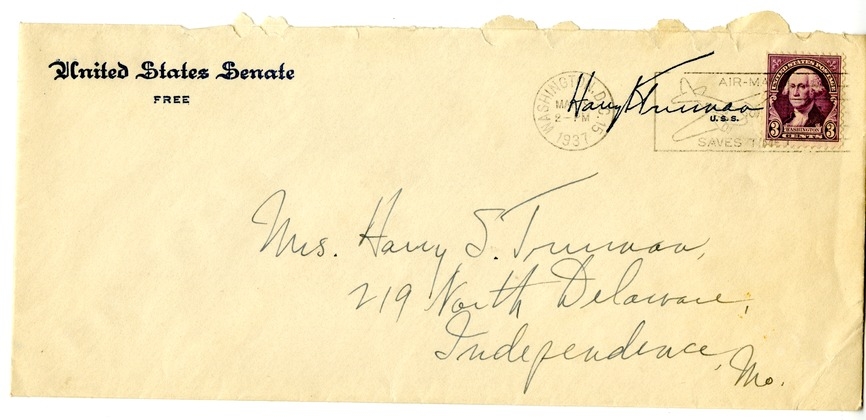 United States Senate
FREE
WASHINGTON, D.C. 15
2- PM
1937
Harry S Truman
U.S.S.
AIR-MA
SAVES TIME
UNITED STATES POSTAGE
WASHINGTON
3 CENTS 3
Mrs. Harry S. Truman,
219 North Delaware,
Independence,
Mo.